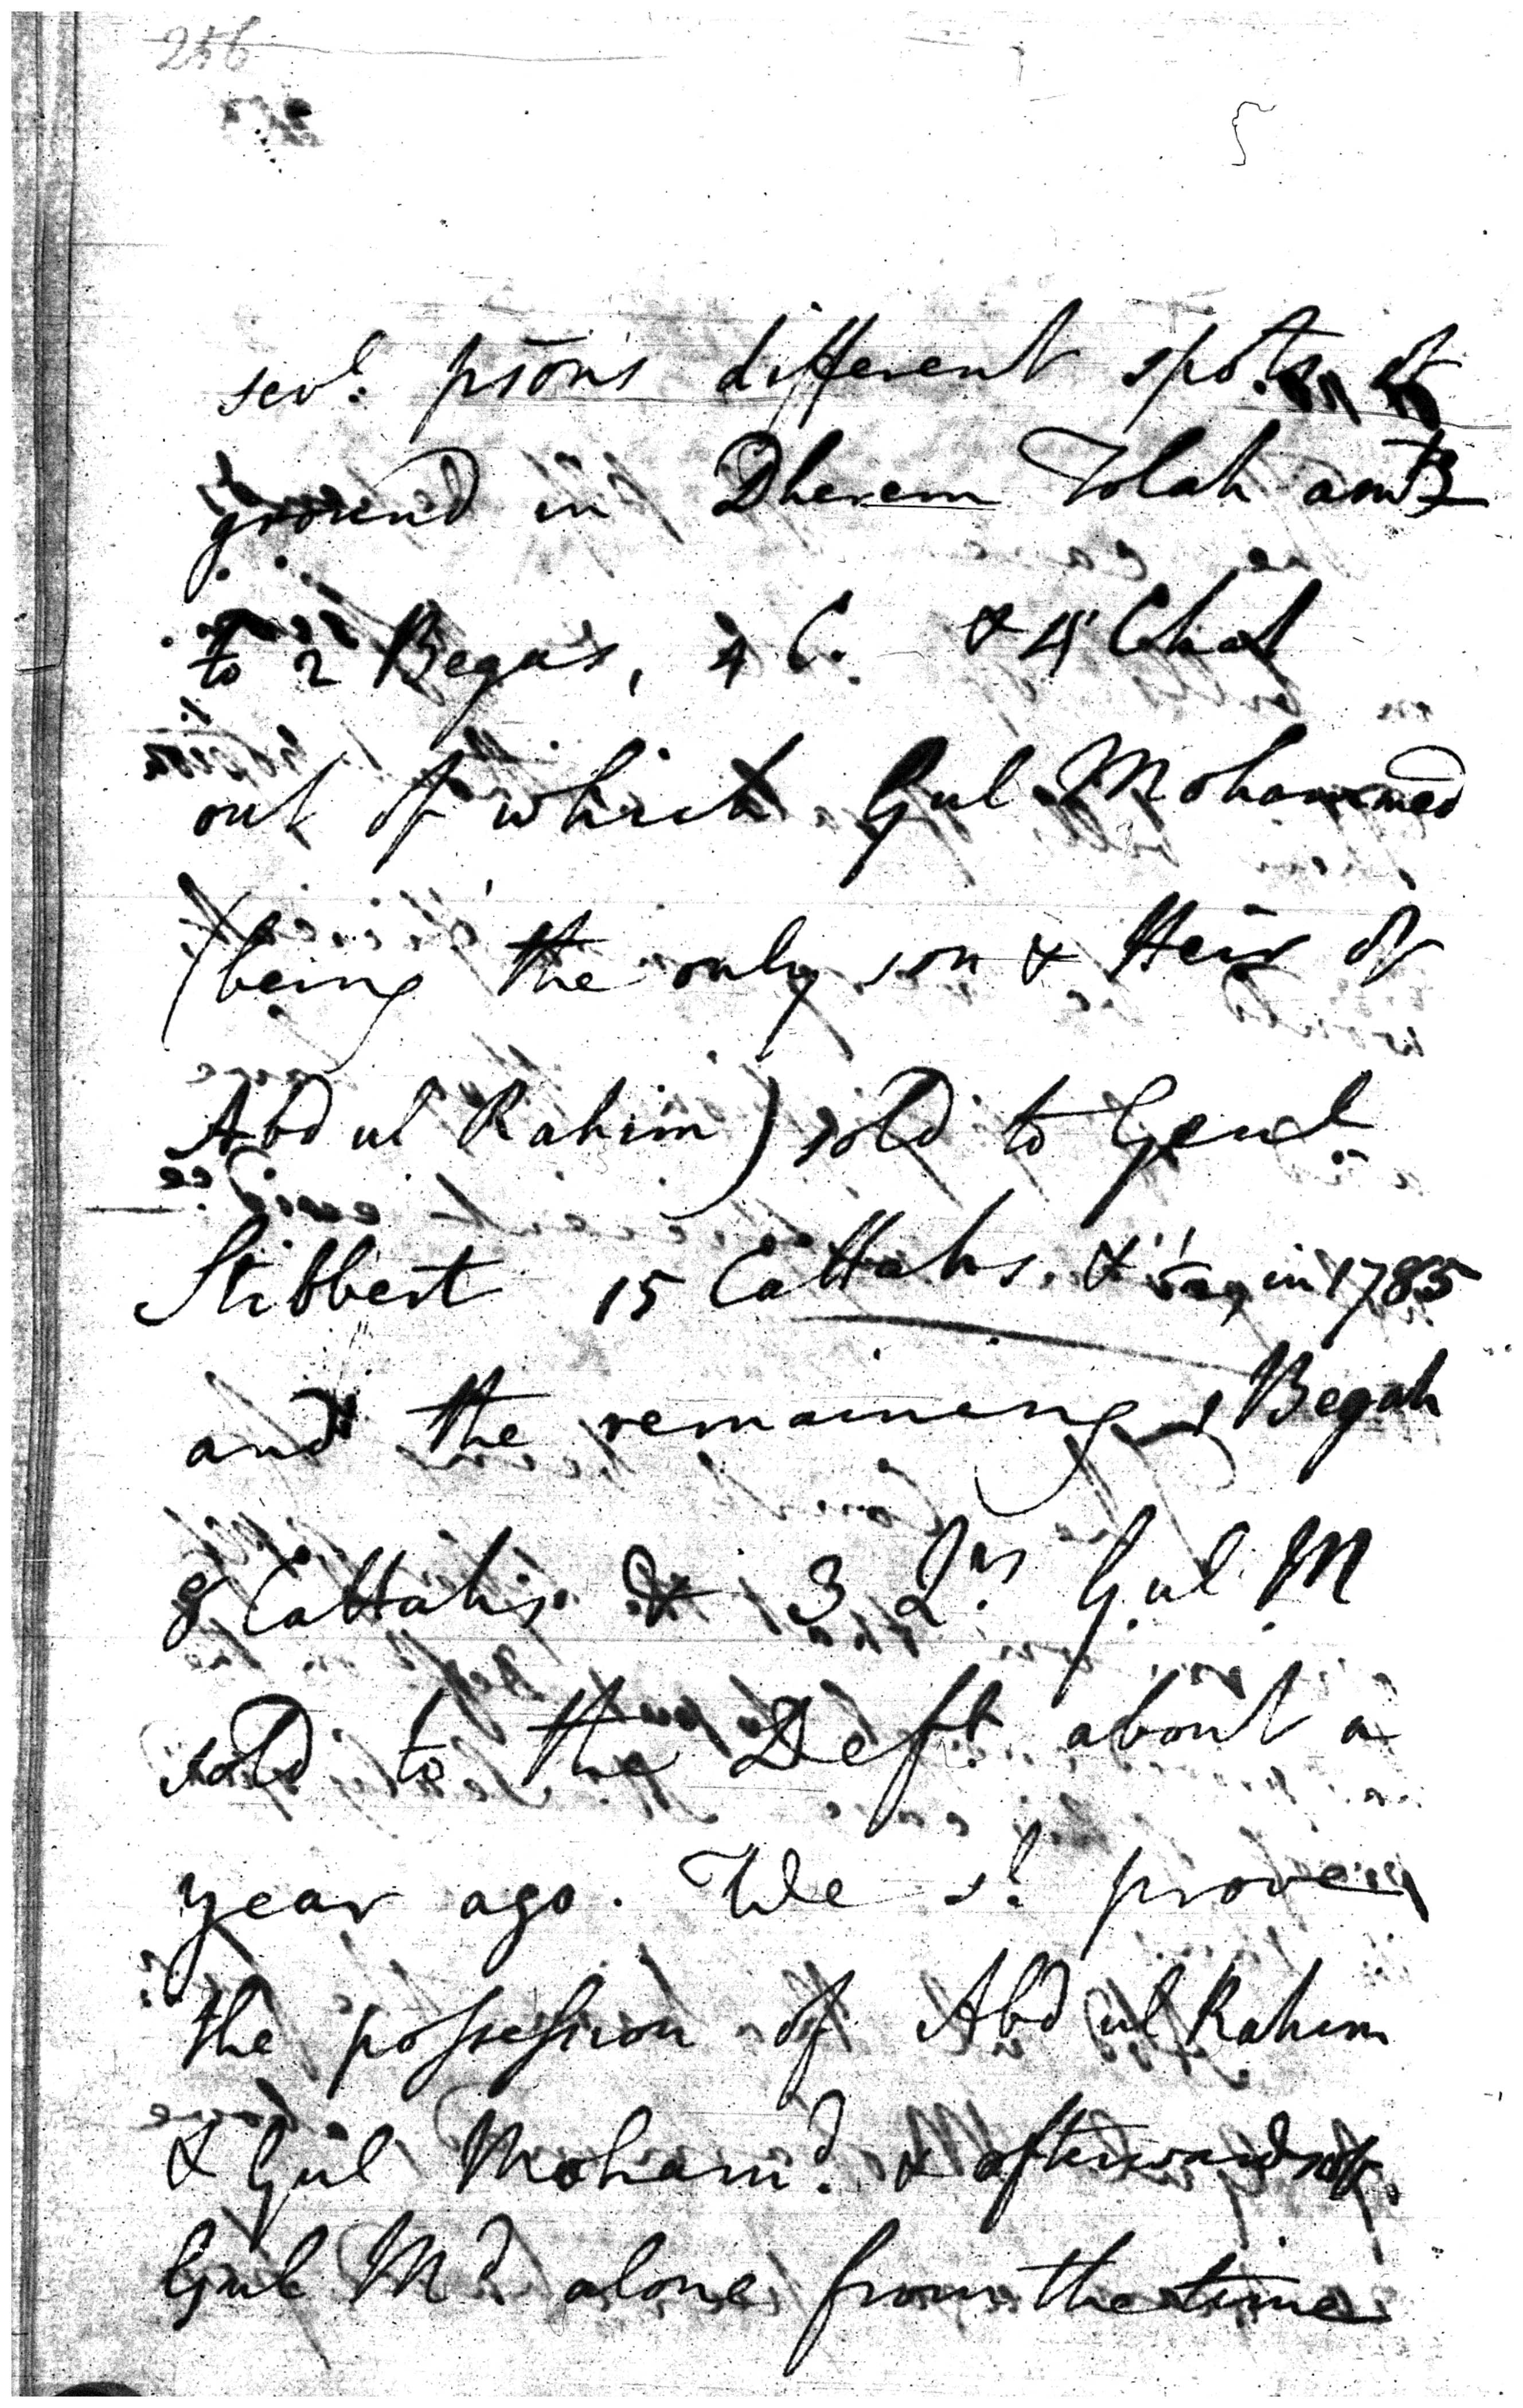 256
sevl. psons different spots of
ground in Dherem Tolah amtg
to 2 Begas, 4 C. & 4 Chat
out of which Gul Mohammed
(being the only son & Heir of
Abd ul Rahim) sold to Genl.
Stibbert 15 Cattahs. & in 1785
and the remaining 1 Begah
8 Cattahs & 3 Qrs Gul M
sold to the Deft. about a
year ago. We sl. prove
the possession of Abd ul Rahim
& Gul Mohamd. & afterwards of
Gul Md alone from the time